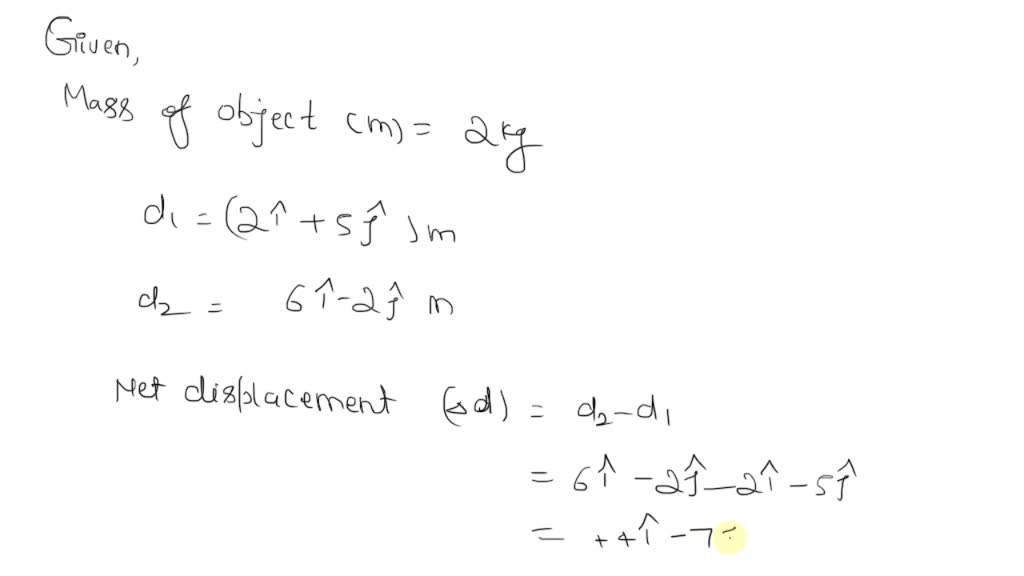 Given,
Mass of object (m) = 2kg
d₁ = (2î + 5ĵ)m
d₂ = 6î-2ĵ m
Net displacement (Δd) = d₂-d₁
= 6î -2ĵ-2î-5ĵ
= +4î-7